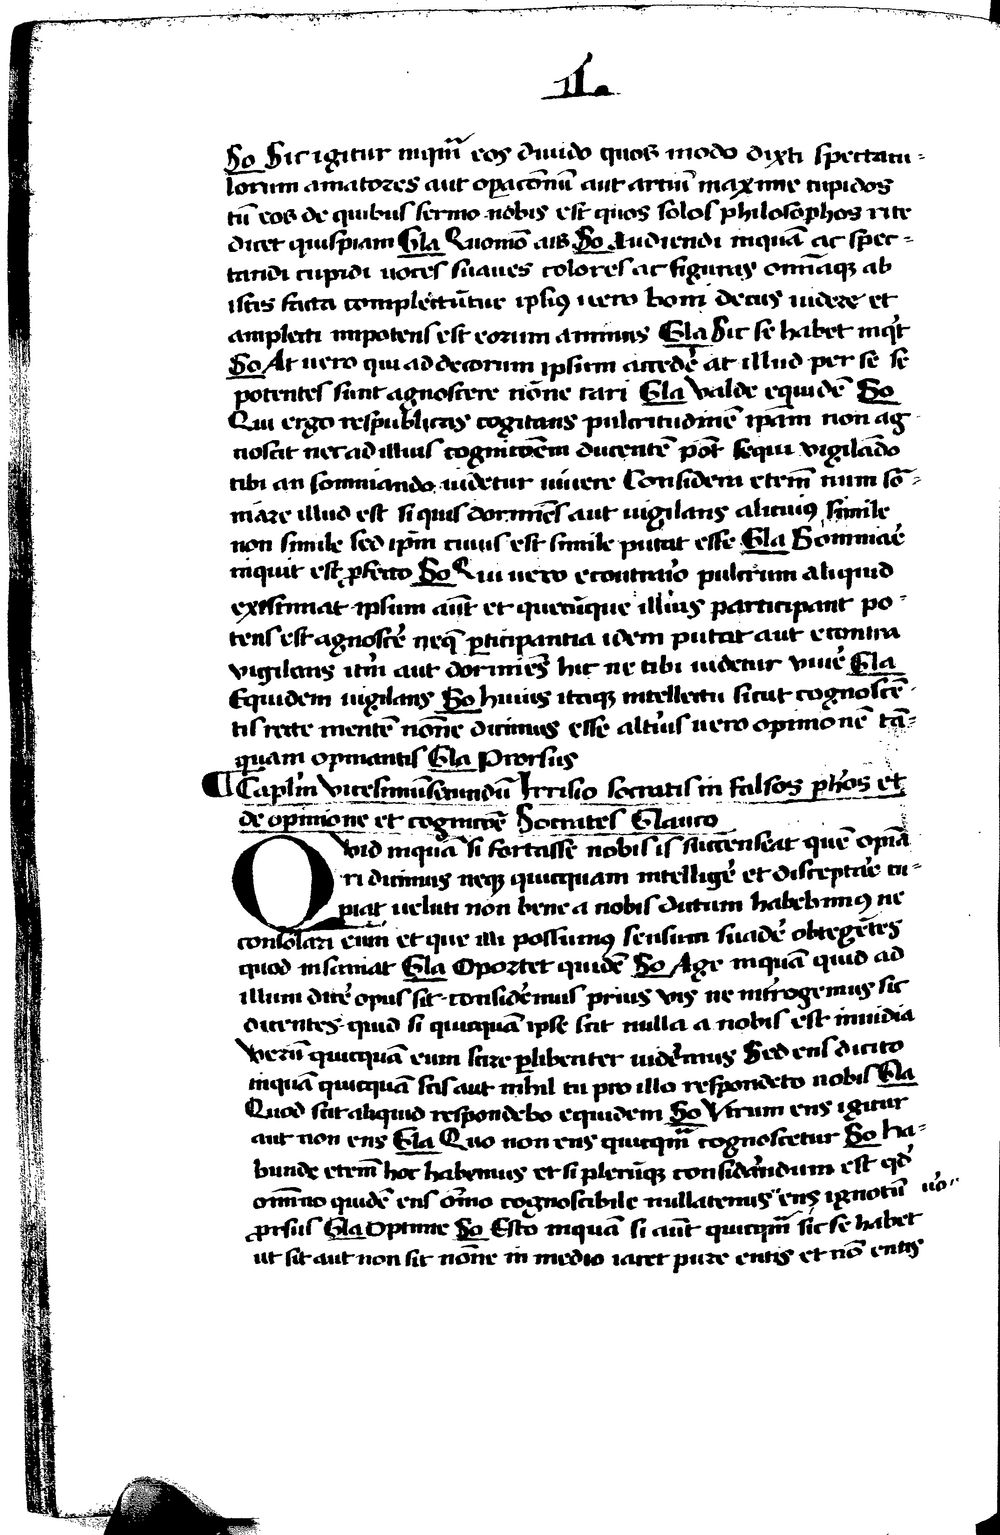 II.
So Sic igitur inquā eos diuido quos modo dixti spectacu-
lorum amatores aut opaconū aut artiū maxime cupidos
tū eos de quibus sermo nobis est quos solos philosophos rite
dicet quispiam Gla Quomō ais So Audiendi inquā ac spec-
tandi cupidi uoces suaues colores ac figuras omīaqȝ ab
istis facta complectūtur ipsiꝰ uero boni decus uidere et
amplecti impotens est eorum animus Gla Sic se habet inqͥt
So At uero qui ad decorum ipsum accedē at illud per se se
potentes sunt agnoscere nōne rari Gla Valde equidē So
Qui ergo respublicas cogitans pulcritudinē ipam non ag
noscit nec ad illius cognicoēm ducentē pōt sequi vigilādo
tibi an somniando uidetur uiuere Considera etem̄ num sō-
niare illud est si quis dormiēs aut uigilans alicuiꝰ simile
non simile sed ipm̄ cuius est simile putat esse Gla Somniaē
inquit est ꝓfecto So Qui uero econtraio pulcrum aliquid
existimat ipsum aūt et quecūque illius participant po-
tens est agnoscē neqȝ ꝑticipantia idem putat aut econtra
vigilans itm̄ aut dormiēs hic ne tibi uidetur viuē Gla
Equidem uigilans So huius itaqȝ intellectū sicut cognoscē-
tis recte mentē nōne dicimus esse altius uero opinionē tā-
quam opinantis Gla Prorsus
¶ Caplm̄ Vicesimūsecundū Irrisio socratis in falsos phōs et
de opinione et cognicoē Socrates Glauco
Quid inquā si fortasse nobis is succenseat quē opīa
ri dicimus neqȝ quicquam intelligē et disceptaē cu-
piat ueluti non bene a nobis dictum habebimꝰ ne
consolari eum et que illi possumꝰ sensim suadē obtegētes
quod insaniat Gla Oportet quidē So Age inquā quid ad
illum dicē opus sit considemus prius vis ne introgemus sic
dicentes quid si quicquā ipse scit nulla a nobis est inuidia
Verū quicquā eum scire ꝑlibenter uidemus Sed ens dicito
inquā quicquā scis aut nihil tu pro illo respondeto nobis Gla
Quod scit aliquid respondebo equidem So Vtrum ens igitur
aut non ens Gla Quo non ens quicqm̄ cognoscetur So ha-
bunde etem̄ hoc habemus et si plerūqȝ considandum est qđ
om̄no quidē ens om̄o cognoscibile nullatenus ens ignotū uo
ꝓrsus Gla Optime So Esto inquā si aūt quicqm̄ sic se habet
ut sit aut non sit nōne in medio iacet pure entis et nō entis